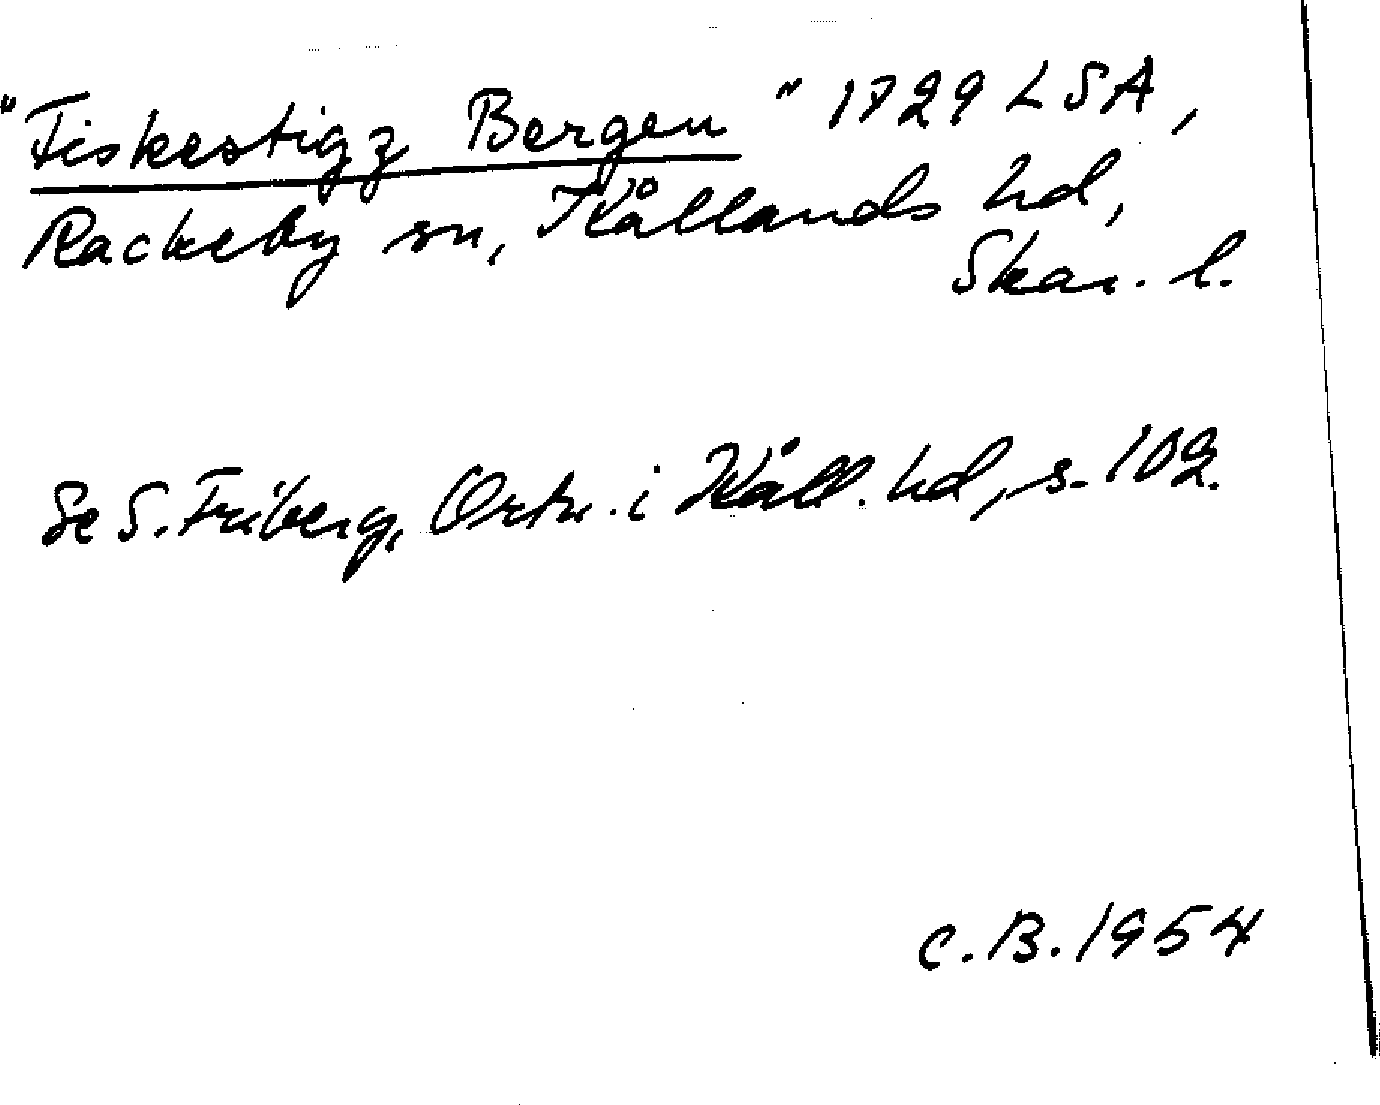 "Fiskestigz Bergen" 1729 LSA,
Rackeby sn, Kållands hd,
Skar. l.
Se S. Friberg, Ortn. i Kåll. hd, s. 102.
C.B. 1954